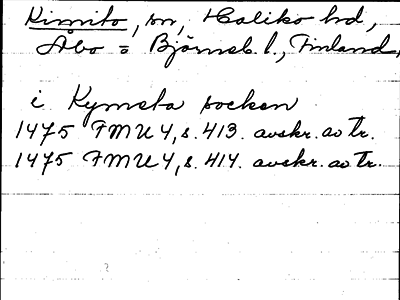 Kimito, sn, Haliko hd,
Åbo = Björneb. l., Finland,
i Kymsta socken
1475 FMU 4, s. 413. avskr. av tr.
1475 FMU 4, s. 414. avskr. av tr.